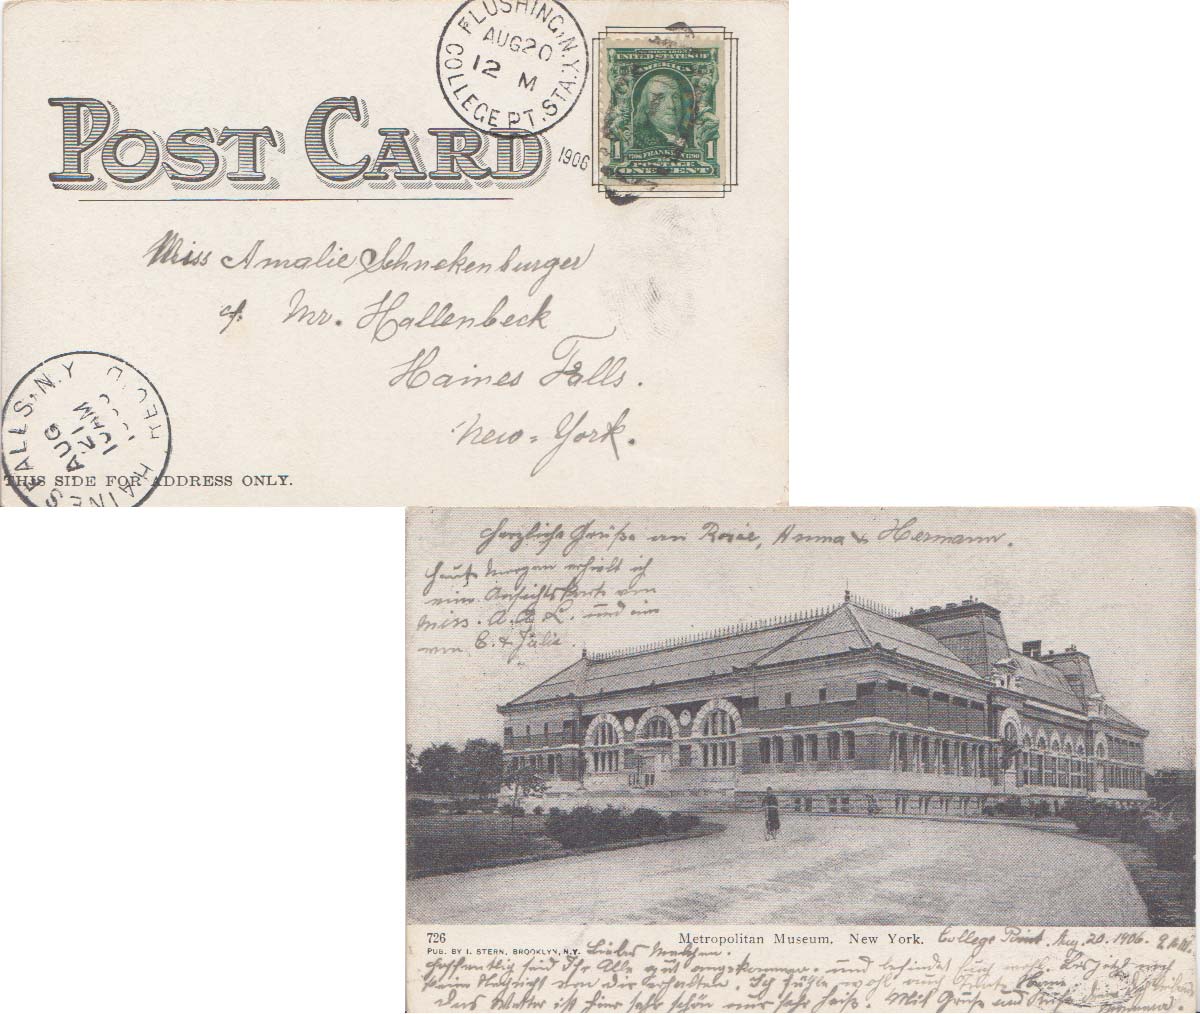 FLUSHING, N.Y.
AUG 20
12 M
COLLEGE PT. STA.
1906
UNITED STATES OF
AMERICA
1 FRANKLIN 1
POSTAGE
ONE CENT
POST CARD
Miss Amalie Schnekenburger
c/. Mr. Hallenbeck
Haines Falls.
New-York.
HAINES FALLS, N.Y. REC'D.
AUG
21
10 AM
THIS SIDE FOR ADDRESS ONLY.
Herzliche Grüße an Rosie, Anna & Hermann.
Heute Morgen erhielt ich
eine Ansichtskarte von
Miss. A. & L. und eine
von C. & Julie.
726
Metropolitan Museum, New York.
PUB. BY I. STERN, BROOKLYN, N.Y.
College Point. Aug. 20. 1906.
Liebes Malchen.
Hoffentlich seid Ihr Alle gut angekommen. und befindet Euch wohl. Bis jetzt noch
keine Nachricht von dir erhalten. Ich fühle wohl auch
Das Wetter ist hier sehr schön nur sehr heiß. Mit Gruß und Kuss Mamma.